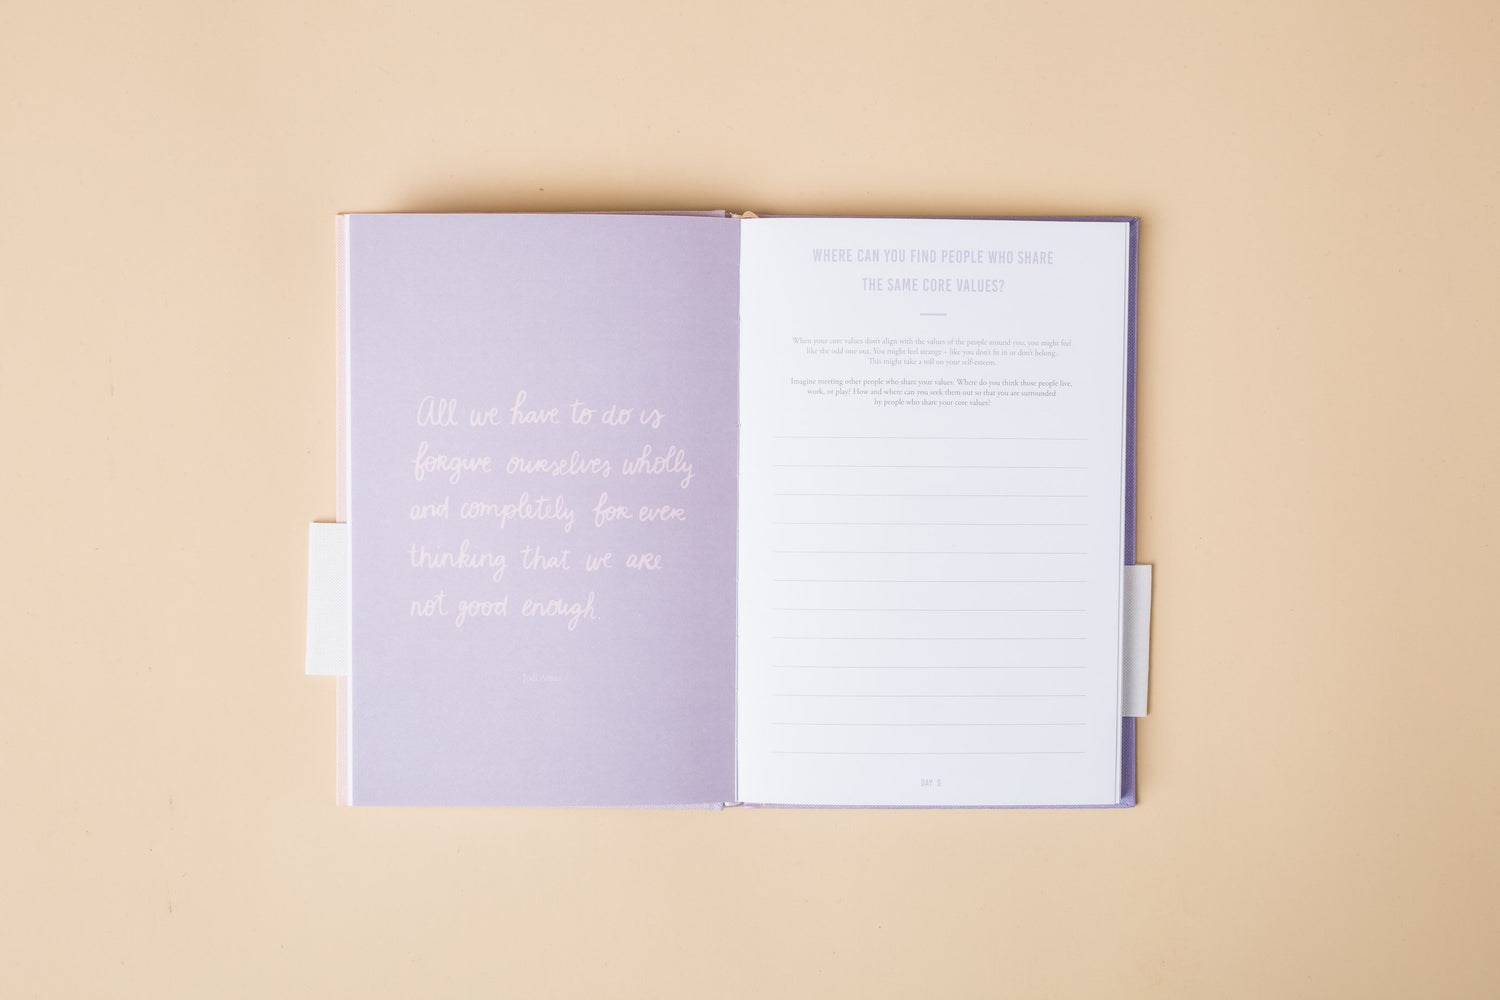 All we have to do is
forgive ourselves wholly
and completely for ever
thinking that we are
not good enough.
Jodi
WHERE CAN YOU FIND PEOPLE WHO SHARE
THE SAME CORE VALUES?
When your core values don't align with the values of the people around you, you might feel
like the odd one out. You might feel strange – like you don't fit in or don't belong.
This might take a toll on your self-esteem.
Imagine meeting other people who share your values. Where do you think those people live,
work, or play? How and where can you seek them out so that you are surrounded
by people who share your core values?
DAY 9